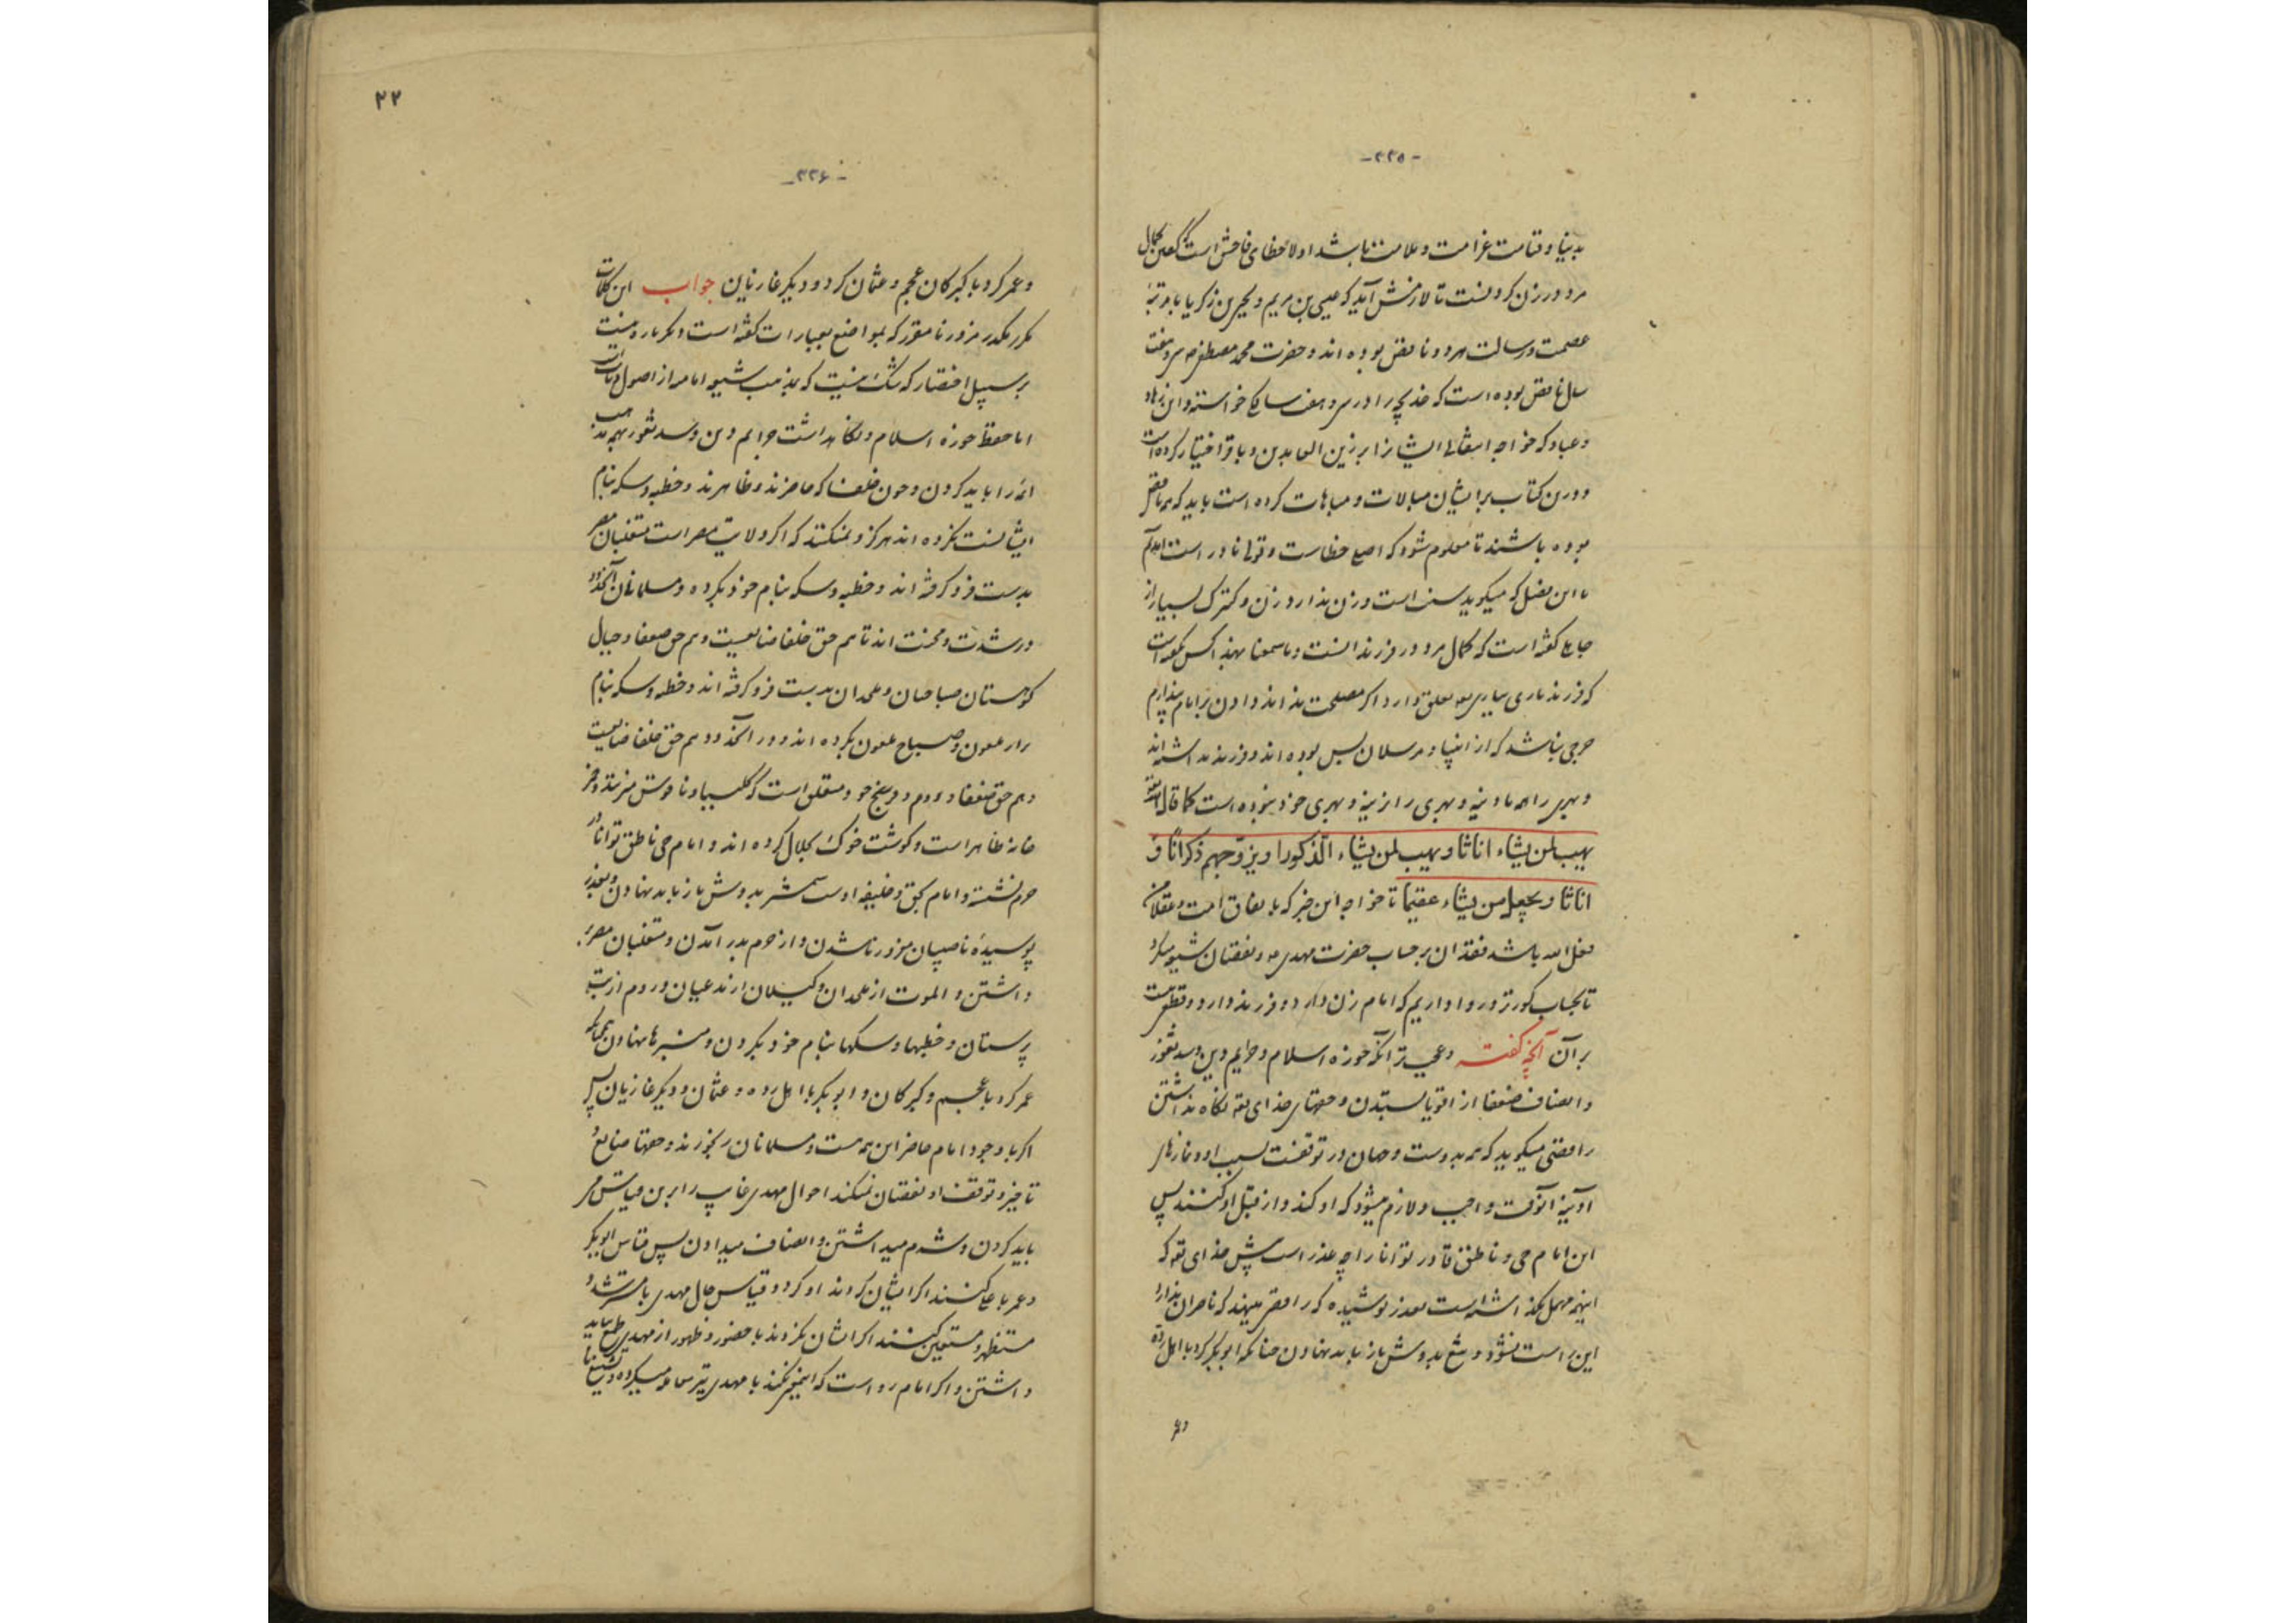 -۳۳۵-
بدنیا و قیامت غرامت و علامت باشد اولا خطای فاحش است گفتن کمال
مرد در زن کردنست تا لازمش آید که عیسی بن مریم و یحیی بن زکریا با مرتبهٔ
عصمت و رسالت هر دو ناقص بوده اند و حضرت محمد مصطفی ص سی و هفت
سال ناقص بوده است که خدیجه را در سی و هفت سالگی خواسته و این زهاد
و عباد که خواجه انتقالی ایشانرا بر زین العابدین و باقر اختیار کرده است
و درین کتاب بر ایشان مبالات و مباهات کرده است باید که همه ناقص
بوده باشند تا معلوم شود که اصلع خطاست و قولی نادر است آمدیم
با این فصل که میگوید سنت است و زن ندارد زن و کنیزک بسیار از
گفته است که کمال مرد در فرزند است و ما سمعنا بهذا کس نگفته است
که فرزند بباری تعالی تعلق دارد اگر مصلحت نداند دادن بر امام ندادیم
حرجی نباشد که از انبیا و مرسلان بس بوده اند و فرزند نداشته اند
و بهری را همه مادینه و بهری را نرینه و بهری خود نبوده است کما قال الله تعالی
یهب لمن یشاء اناثا و یهب لمن یشاء الذکور او یزوجهم ذکرانا و
اناثا و یجعل من یشاء عقیما تا خواجه این خبر که باتفاق امت و عقلا من
فعل الله باشد فقدان بر حساب حضرت مهدی ع و نقصان شیعه میکرد
تا بحساب کورتر و روا داریم که امام زن دارد و فرزند دارد و قطعی نیست
بر آن آنچه گفته و عجب تر آنکه حوزه اسلام و حرایم دین و سد ثغور
و انصاف ضعفا از اقویا ستدن و حقهای خدای تعالی نگاه نداشتن
رافضی میگوید که همه بدوست و جهان در توقفست بسبب او و نمازهای
آدینه آنوقت واجب و لازم میشود که او کند و از قبل او کنند پس
این امام حی و ناطق قادر توانا را چه عذر است پیش خدای تعالی که
اینهمه مهمل بگذاشته است بعذر پوشیده که رافضی مینهد که ناصران ندارد
این راست نشود و تیغ بدوش باز باید نهادن چنانکه ابوبکر کرد با اهل رده
و عمر
۲۲
-۳۳۶-
و عمر کرد با گبرکان عجم و عثمان کرد و دیگر غازیان جواب این کلمات
مکرر مکدر مزور نامقرر که بمواضع بعبارات گفته است و مکر باره نیست
بر سبیل اختصار که شک نیست که بمذهب شیعه امامت از اصول دیانات
اما حفظ حوزه اسلام و نگاهداشت حرایم دین و سد ثغور بهمه مذهب
ائمه را باید کردن و چون خلفا که حاضرند و ظاهرند و خطبه و سکه بنام
ایشانست نکرده اند هرگز و نمیکنند که اگر ولایت مصر است متغلبان مصر
بدست فرو گرفته اند و خطبه و سکه بنام خود بکرده و مسلمانان آنحدود
در شدت و محنت اند تا هم حق خلفا ضایعست و هم حق ضعفا و جبال
کوهستان صباحیان و ملحدان بدست فرو گرفته اند و خطبه و سکه بنام
نزار ملعون و صباح ملعون بکرده اند و در آنحدود هم حق خلفا ضایعست
و هم حق ضعفا و روم و فرنج خود متعلق است که کلیسیا و ناقوس میزنند و خمر
خانه ظاهر است و گوشت خوک بحلال کرده اند و امام حی ناطق توانا در
حرم نشسته و امام بحق و خلیفه اوست شمشیر بدوش باز باید نهادن و بعذر
پوسیدهٔ ناصبیان مزور ناشدن و از حرم بدر آمدن و متغلبان مصر
داشتن و الموت از ملحدان و گیلان از مدعیان و روم از بت
پرستان و خطبها و سکها بنام خود بکردن و منبرها نهادن همچنانکه
عمر کرد با عجم و گبرکان و ابوبکر با اهل رده و عثمان و دیگر غازیان پس
اگر با وجود امام حاضر این همه هست و مسلمانان رنجورند و حقها ضایع و
تاخیر و توقف او نقصان نمیکند احوال مهدی غایب را برین قیاس می
باید کردن و شرم میداشتن و انصاف میدادن پس قیاس ابوبکر
و عمر با علی کنند اگر ایشان کردند او کرد و قیاس حال مهدی با مسترشد و
مستظهر و مستعین کنند اگر ایشان نکردند با حضور و ظهور از مهدی طمع نباید
داشتن و اگر امام رواست که اینچنین کند با مهدی نیز معامله میکرده و تشنیع